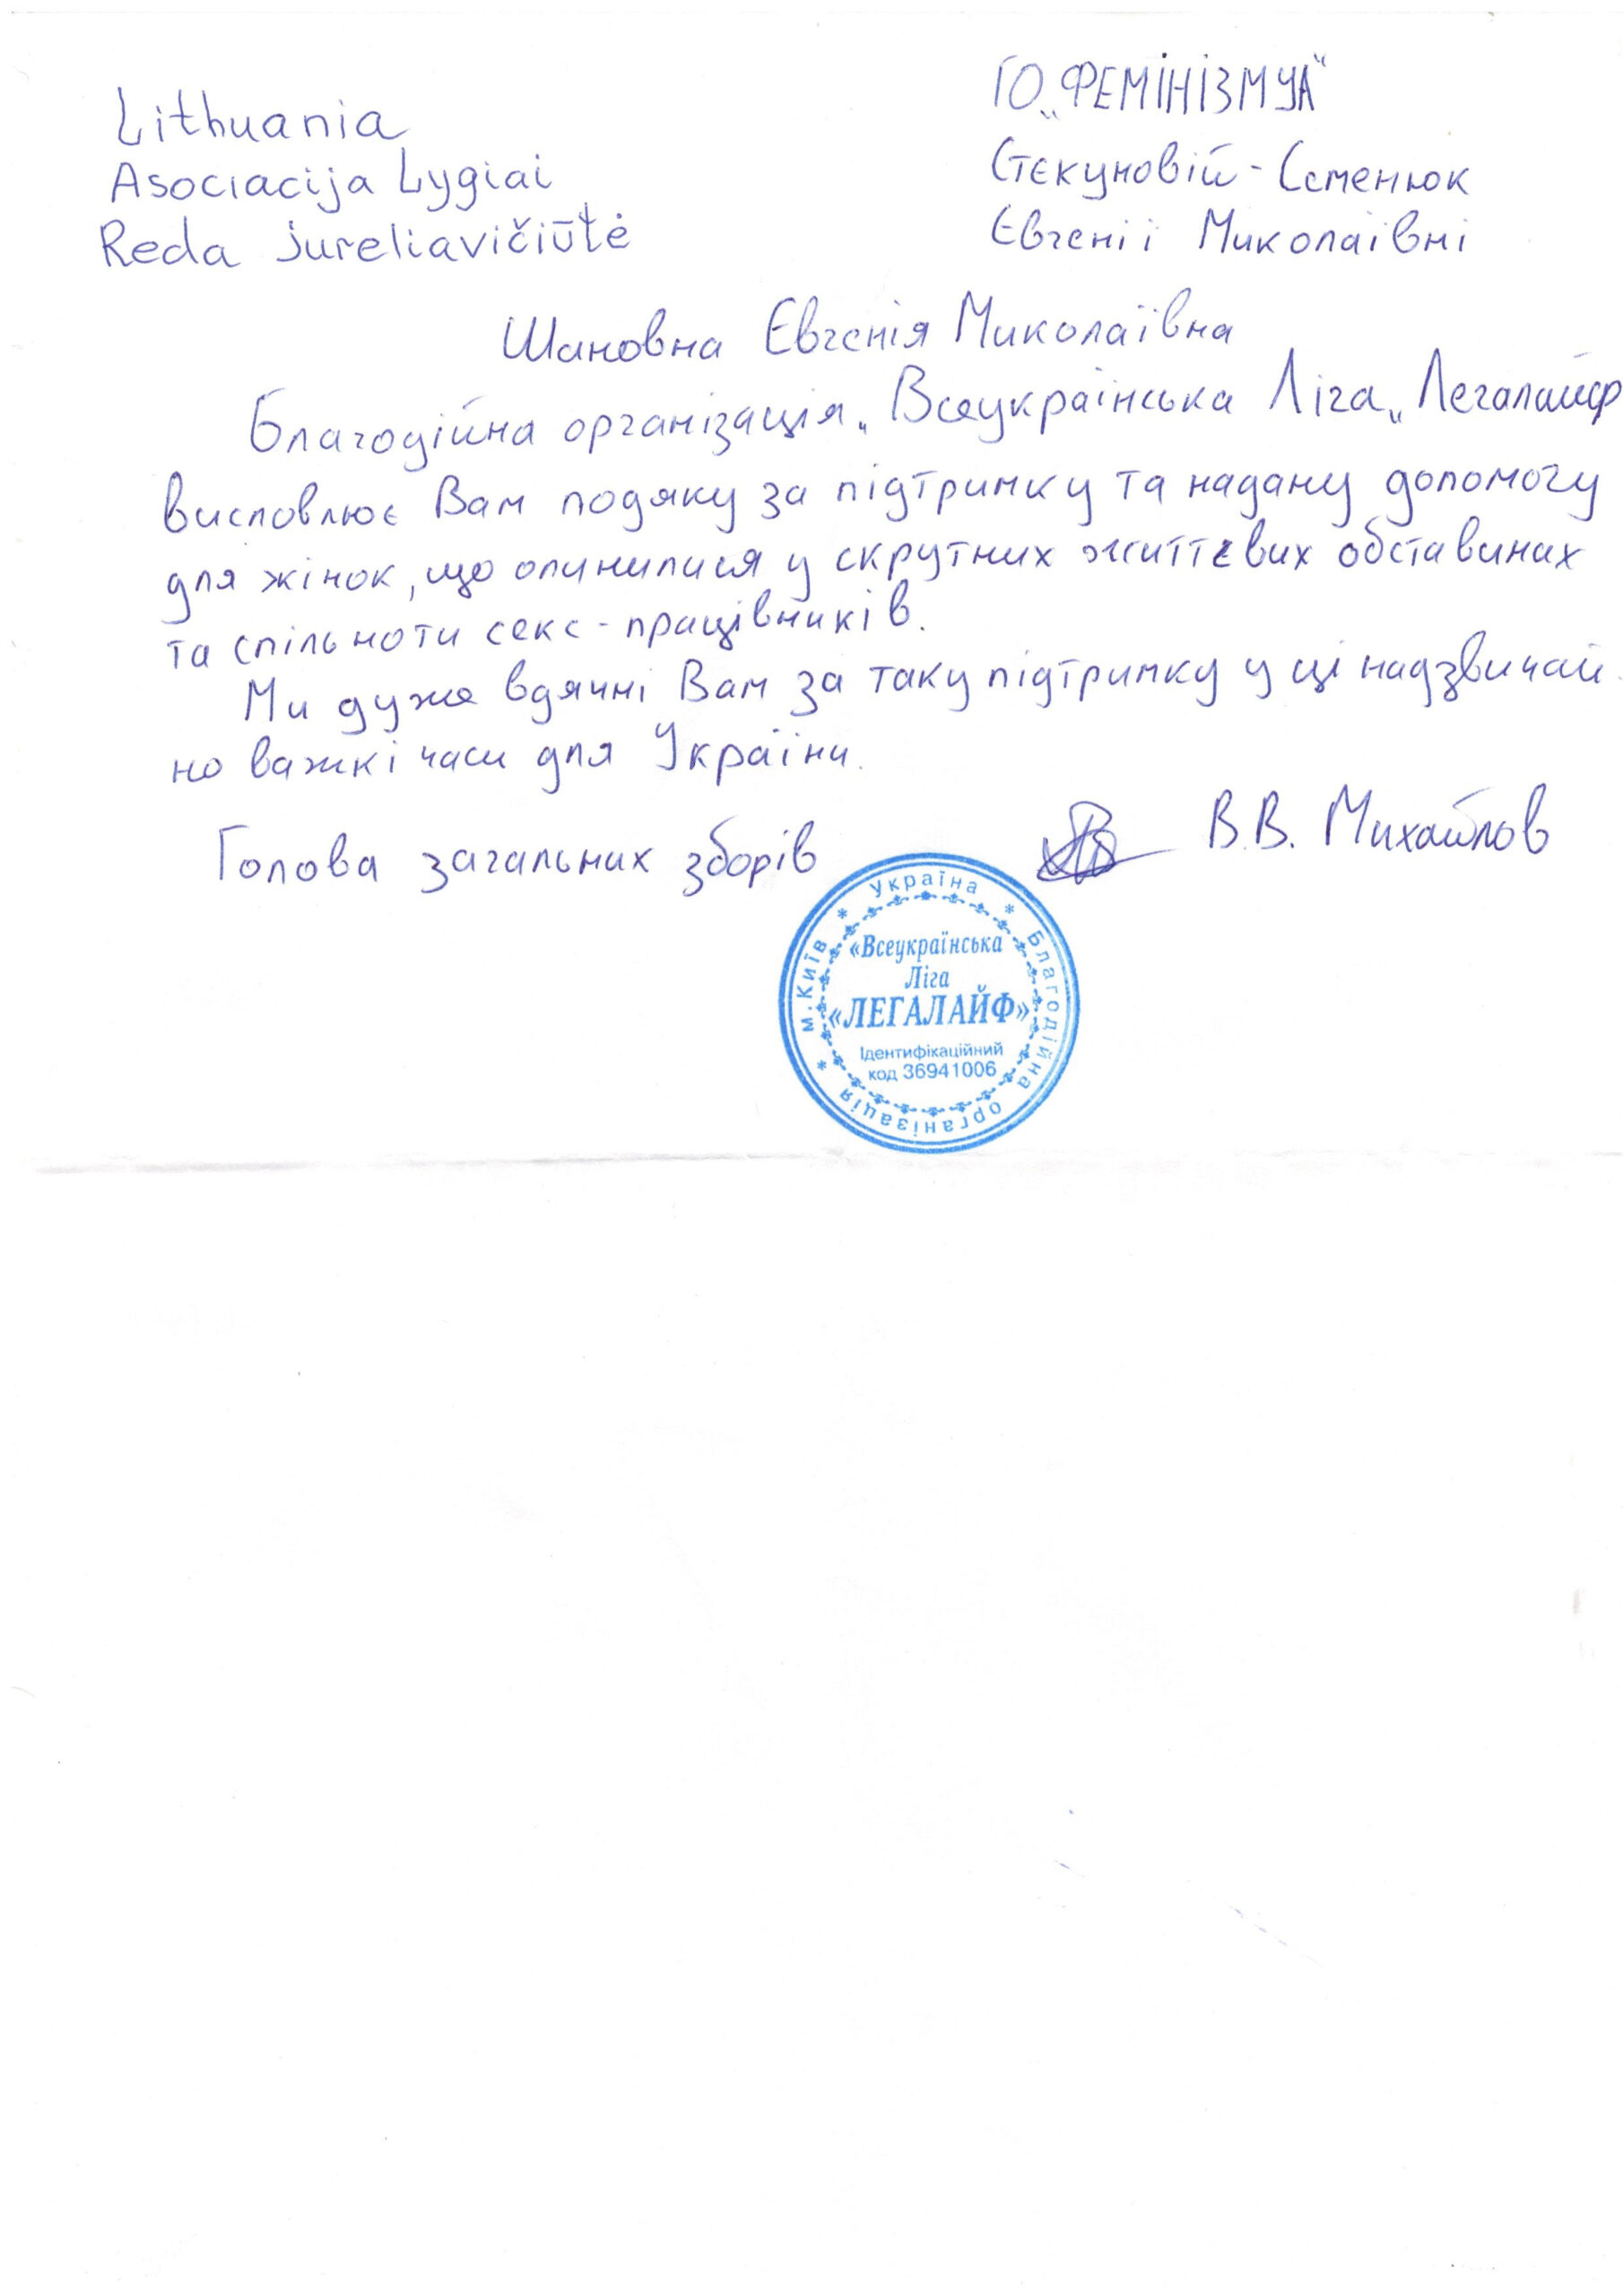 Lithuania
Asociacija Lygiai
Reda jureliavičiūtė
ГО „ФЕМІНІЗМУА“
Стєкуновій-Семенюк
Євгенії Миколаївні
Шановна Євгенія Миколаївна
Благодійна організація „Всеукраїнська Ліга „Легалайф
висловлює Вам подяку за підтримку та надану допомогу
для жінок, що опинилися у скрутних життєвих обставинах
та спільноти секс-працівників.
Ми дуже вдячні Вам за таку підтримку у ці надзвичай-
но важкі часи для України.
Голова загальних зборів
В.В. Михайлов
м.Київ * Україна * Благодійна організація *
«Всеукраїнська
Ліга
«ЛЕГАЛАЙФ»
Ідентифікаційний
код 36941006